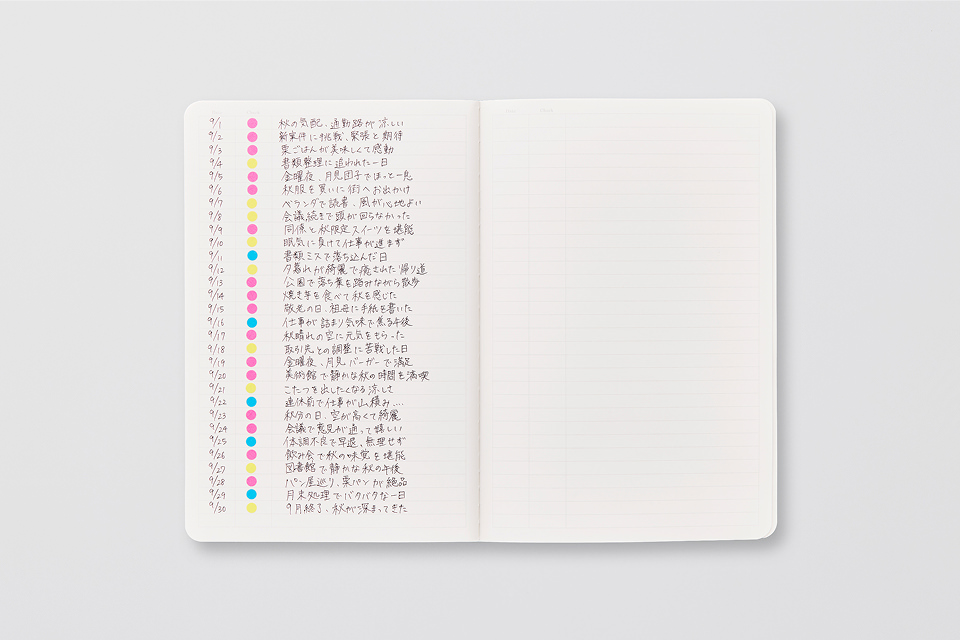 9/1 秋の気配、通勤路が涼しい
9/2 新案件に挑戦、緊張と期待
9/3 栗ごはんが美味しくて感動
9/4 書類整理に追われた一日
9/5 金曜夜、月見団子でほっと一息
9/6 秋服を買いに街へお出かけ
9/7 ベランダで読書、風が心地よい
9/8 会議続きで頭が回らなかった
9/9 同僚と秋限定スイーツを堪能
9/10 眠気に負けて仕事が進まず
9/11 書類ミスで落ち込んだ日
9/12 夕暮れが綺麗で癒された帰り道
9/13 公園で落ち葉を踏みながら散歩
9/14 焼き芋を食べて秋を感じた
9/15 敬老の日、祖母に手紙を書いた
9/16 仕事が詰まり気味で焦る午後
9/17 秋晴れの空に元気をもらった
9/18 取引先との調整に苦戦した日
9/19 金曜夜、月見バーガーで満足
9/20 美術館で静かな秋の時間を満喫
9/21 こたつを出したくなる涼しさ
9/22 連休前で仕事が山積み....
9/23 秋分の日、空が高くて綺麗
9/24 会議で意見が通って嬉しい
9/25 体調不良で早退、無理せず
9/26 飲み会で秋の味覚を堪能
9/27 図書館で静かな秋の午後
9/28 パン屋巡り、栗パンが絶品
9/29 月末処理でバタバタな一日
9/30 9月終了、秋が深まってきた